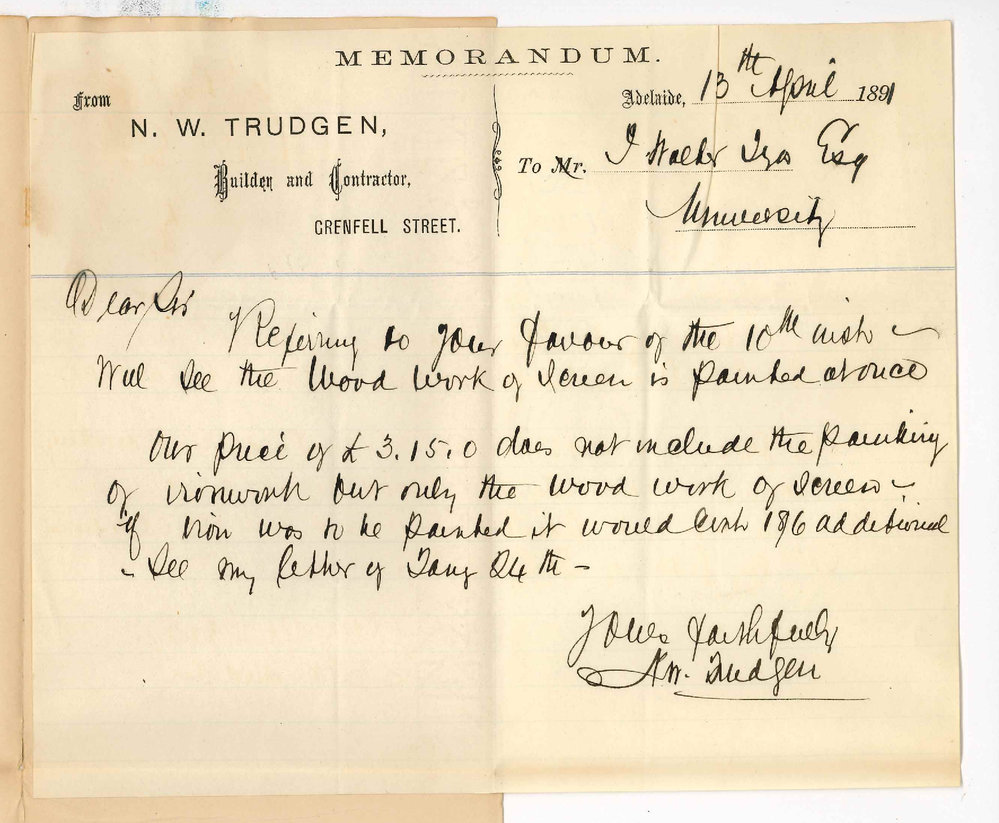 MEMORANDUM.
From
N. W. TRUDGEN,
Builder and Contractor,
GRENFELL STREET.
Adelaide, 13th April 1891
To Mr. J Walter Tyas Esq
University
Dear Sir
Referring to your favour of the 10th inst –
Will see the Wood Work of Screen is painted at once
Our price of £3.15.0 does not include the painking
of ironwork but only the wood work of Screen –
if iron was to be painted it would Cost 18/6 additional
– See my letter of Jany 24th –
Yours faithfully
N.W. Trudgen